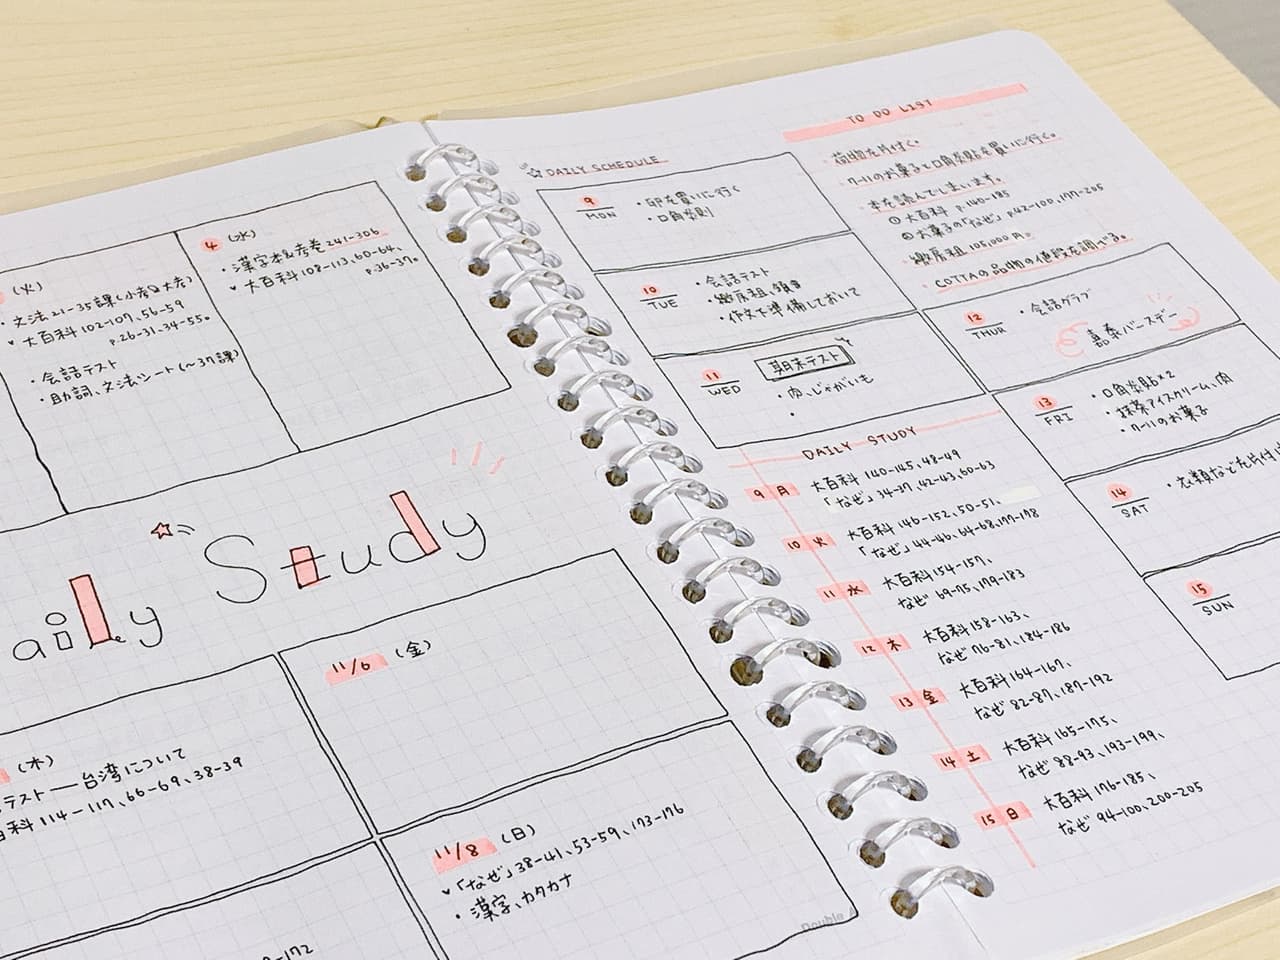 (火)
・文法21-35課(小考&大考)
大百科102-107、56-59
p.26-31、34-55。
・会話テスト
・助詞、文法シート(~37課)
4 (水)
・漢字本&考卷241-306
大百科108-113、60-64、
p.36-37。
aily Study
(木)
テスト―台湾について
百科114-117、66-69、38-39
11/6 (金)
11/8 (日)
「なぜ」38-41、53-59、173-176
・漢字、カタカナ
-172
Double A
DAILY SCHEDULE
9 MON
・卵を買いに行く
・口角炎
10 TUE
・会話テスト
・繳房租、領
・作文を準備しておいて
11 WED
期末テスト
・肉、じゃがいも
・
12 THUR
・会話クラブ
嘉泰バースデー
13 FRI
・口角炎貼×2
・抹茶アイスクリーム、肉
・クールのお菓子
14 SAT
・衣類などを片付け
15 SUN
TO DO LIST
・荷物を片付く。
・クールのお菓子と口角炎貼を買いに行く。
・本を読んでしまいます。
①大百科 p.140-185
②お菓子の「なぜ」p.42-100、177-205
・繳房租 105,000円。
・COTTAの品物の値段を調べる。
DAILY STUDY
9 月 大百科140-145、48-49
「なぜ」34-37、42-43、60-63
10 火 大百科146-152、50-51、
「なぜ」44-46、64-68、177-178
11 水 大百科154-157、
なぜ 69-75、179-183
12 木 大百科158-163、
なぜ 76-81、184-186
13 金 大百科164-167、
なぜ 82-87、187-192
14 土 大百科165-175、
なぜ 88-93、193-199、
15 日 大百科176-185、
なぜ 94-100、200-205